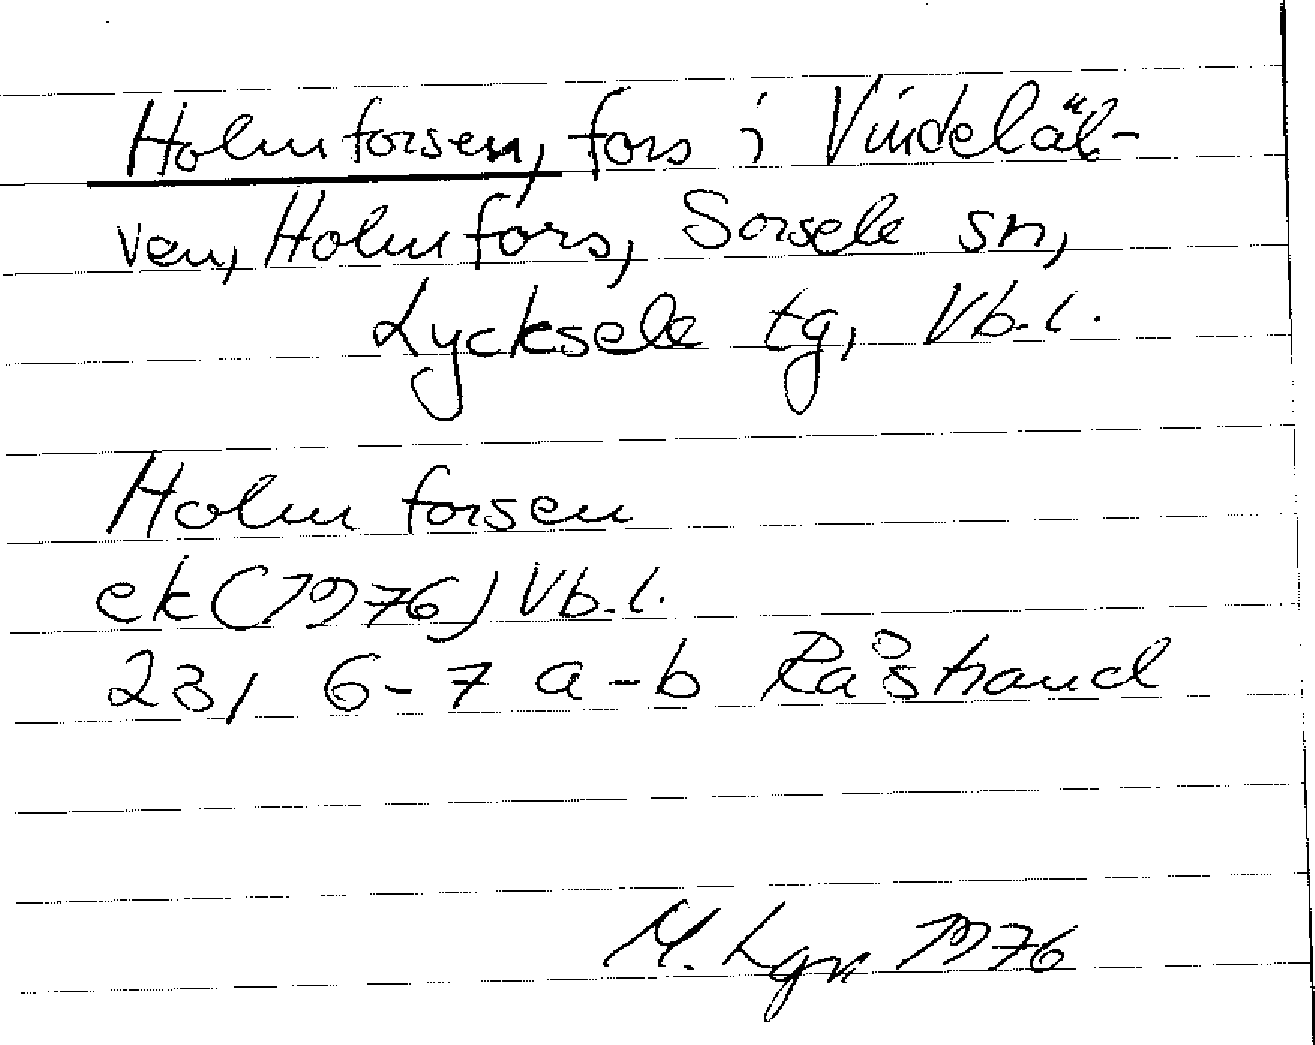 Holmforsen, fors i Vindeläl-
ven, Holmfors, Sorsele sn,
Lycksele tg, Vb.l.
Holmforsen
ek (1976) Vb.l.
23, 6-7 a-b Råstrand
M. Lgn 1976